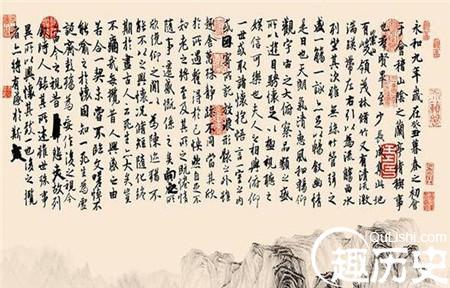 永和九年歲在癸丑暮春之初會
于會稽山陰之蘭亭脩禊事
也群賢畢至少長咸集此地
有崇山峻領茂林脩竹又有清流激
湍暎帶左右引以為流觴曲水
列坐其次雖無絲竹管弦之
盛一觴一詠亦足以暢敘幽情
是日也天朗氣清惠風和暢仰
觀宇宙之大俯察品類之盛
所以遊目騁懷足以極視聽之
娛信可樂也夫人之相與俯仰
一世或取諸懷抱悟言一室之內
或因寄所託放浪形骸之外雖
趣舍萬殊靜躁不同當其欣
於所遇暫得於己怏然自足不
知老之將至及其所之既惓情
隨事遷感慨係之矣向之所
欣俛仰之間以為陳迹猶不
能不以之興懷況脩短隨化終
期於盡古人云死生亦大矣豈
不痛哉每攬昔人興感之由
若合一契未嘗不臨文嗟悼不
能喻之於懷固知一死生為虛
誕齊彭殤為妄作後之視今
亦由今之視昔悲夫故列
敘時人錄其所述雖世殊事
異所以興懷其致一也後之攬
者亦將有感於斯
QuLishi.com
趣历史